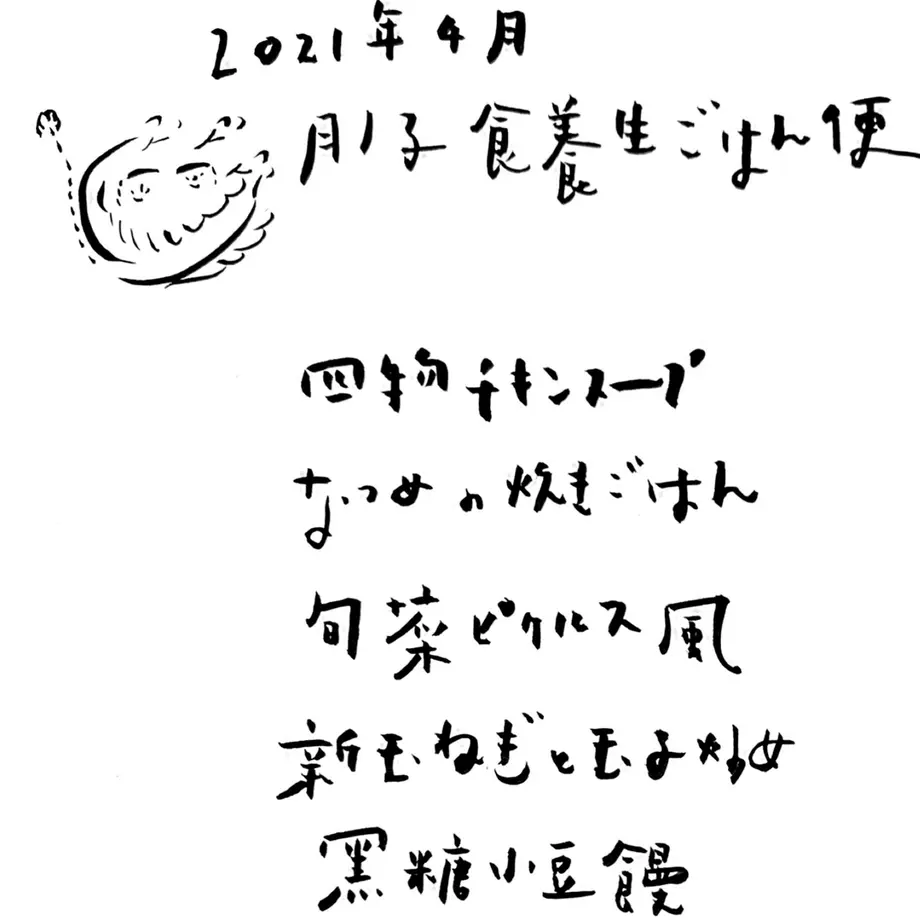 2021年4月
月ノ子 食養生ごはん便
四物チキンスープ
なつめの焼きごはん
旬菜ピクルス風
新玉ねぎと玉子炒め
黒糖小豆饅